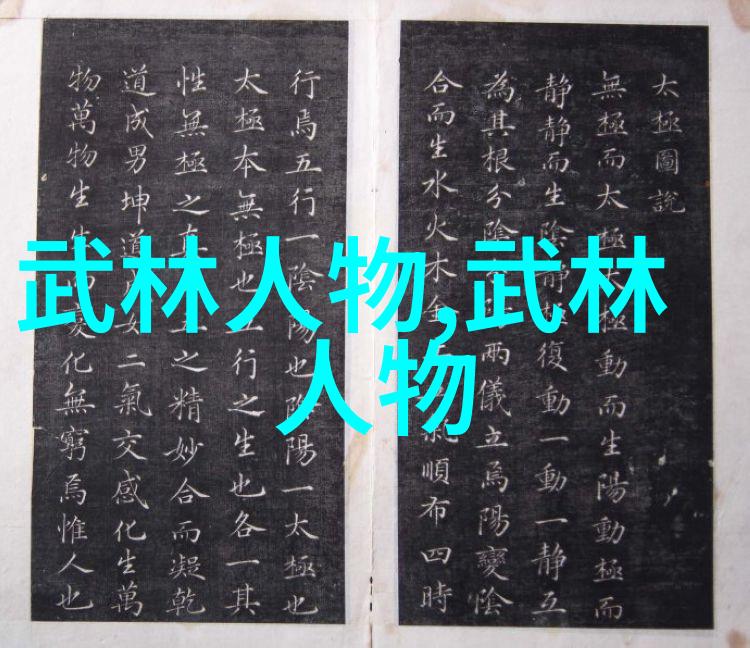 武林人物,武林
人物
太極圖說
無極而太極太極動而生陽動極而
靜靜而生陰靜極復動一動一靜互
為其根分陰陽兩儀立焉陽變陰
合而生水火木金氣順布四時
行焉五行一陰陽也陰陽一太極也
太極本無極也五行之生也各一其
性無極之真之精妙合而凝乾
道成男坤道女二氣交感化生萬
物萬物生生變化無窮焉惟人也